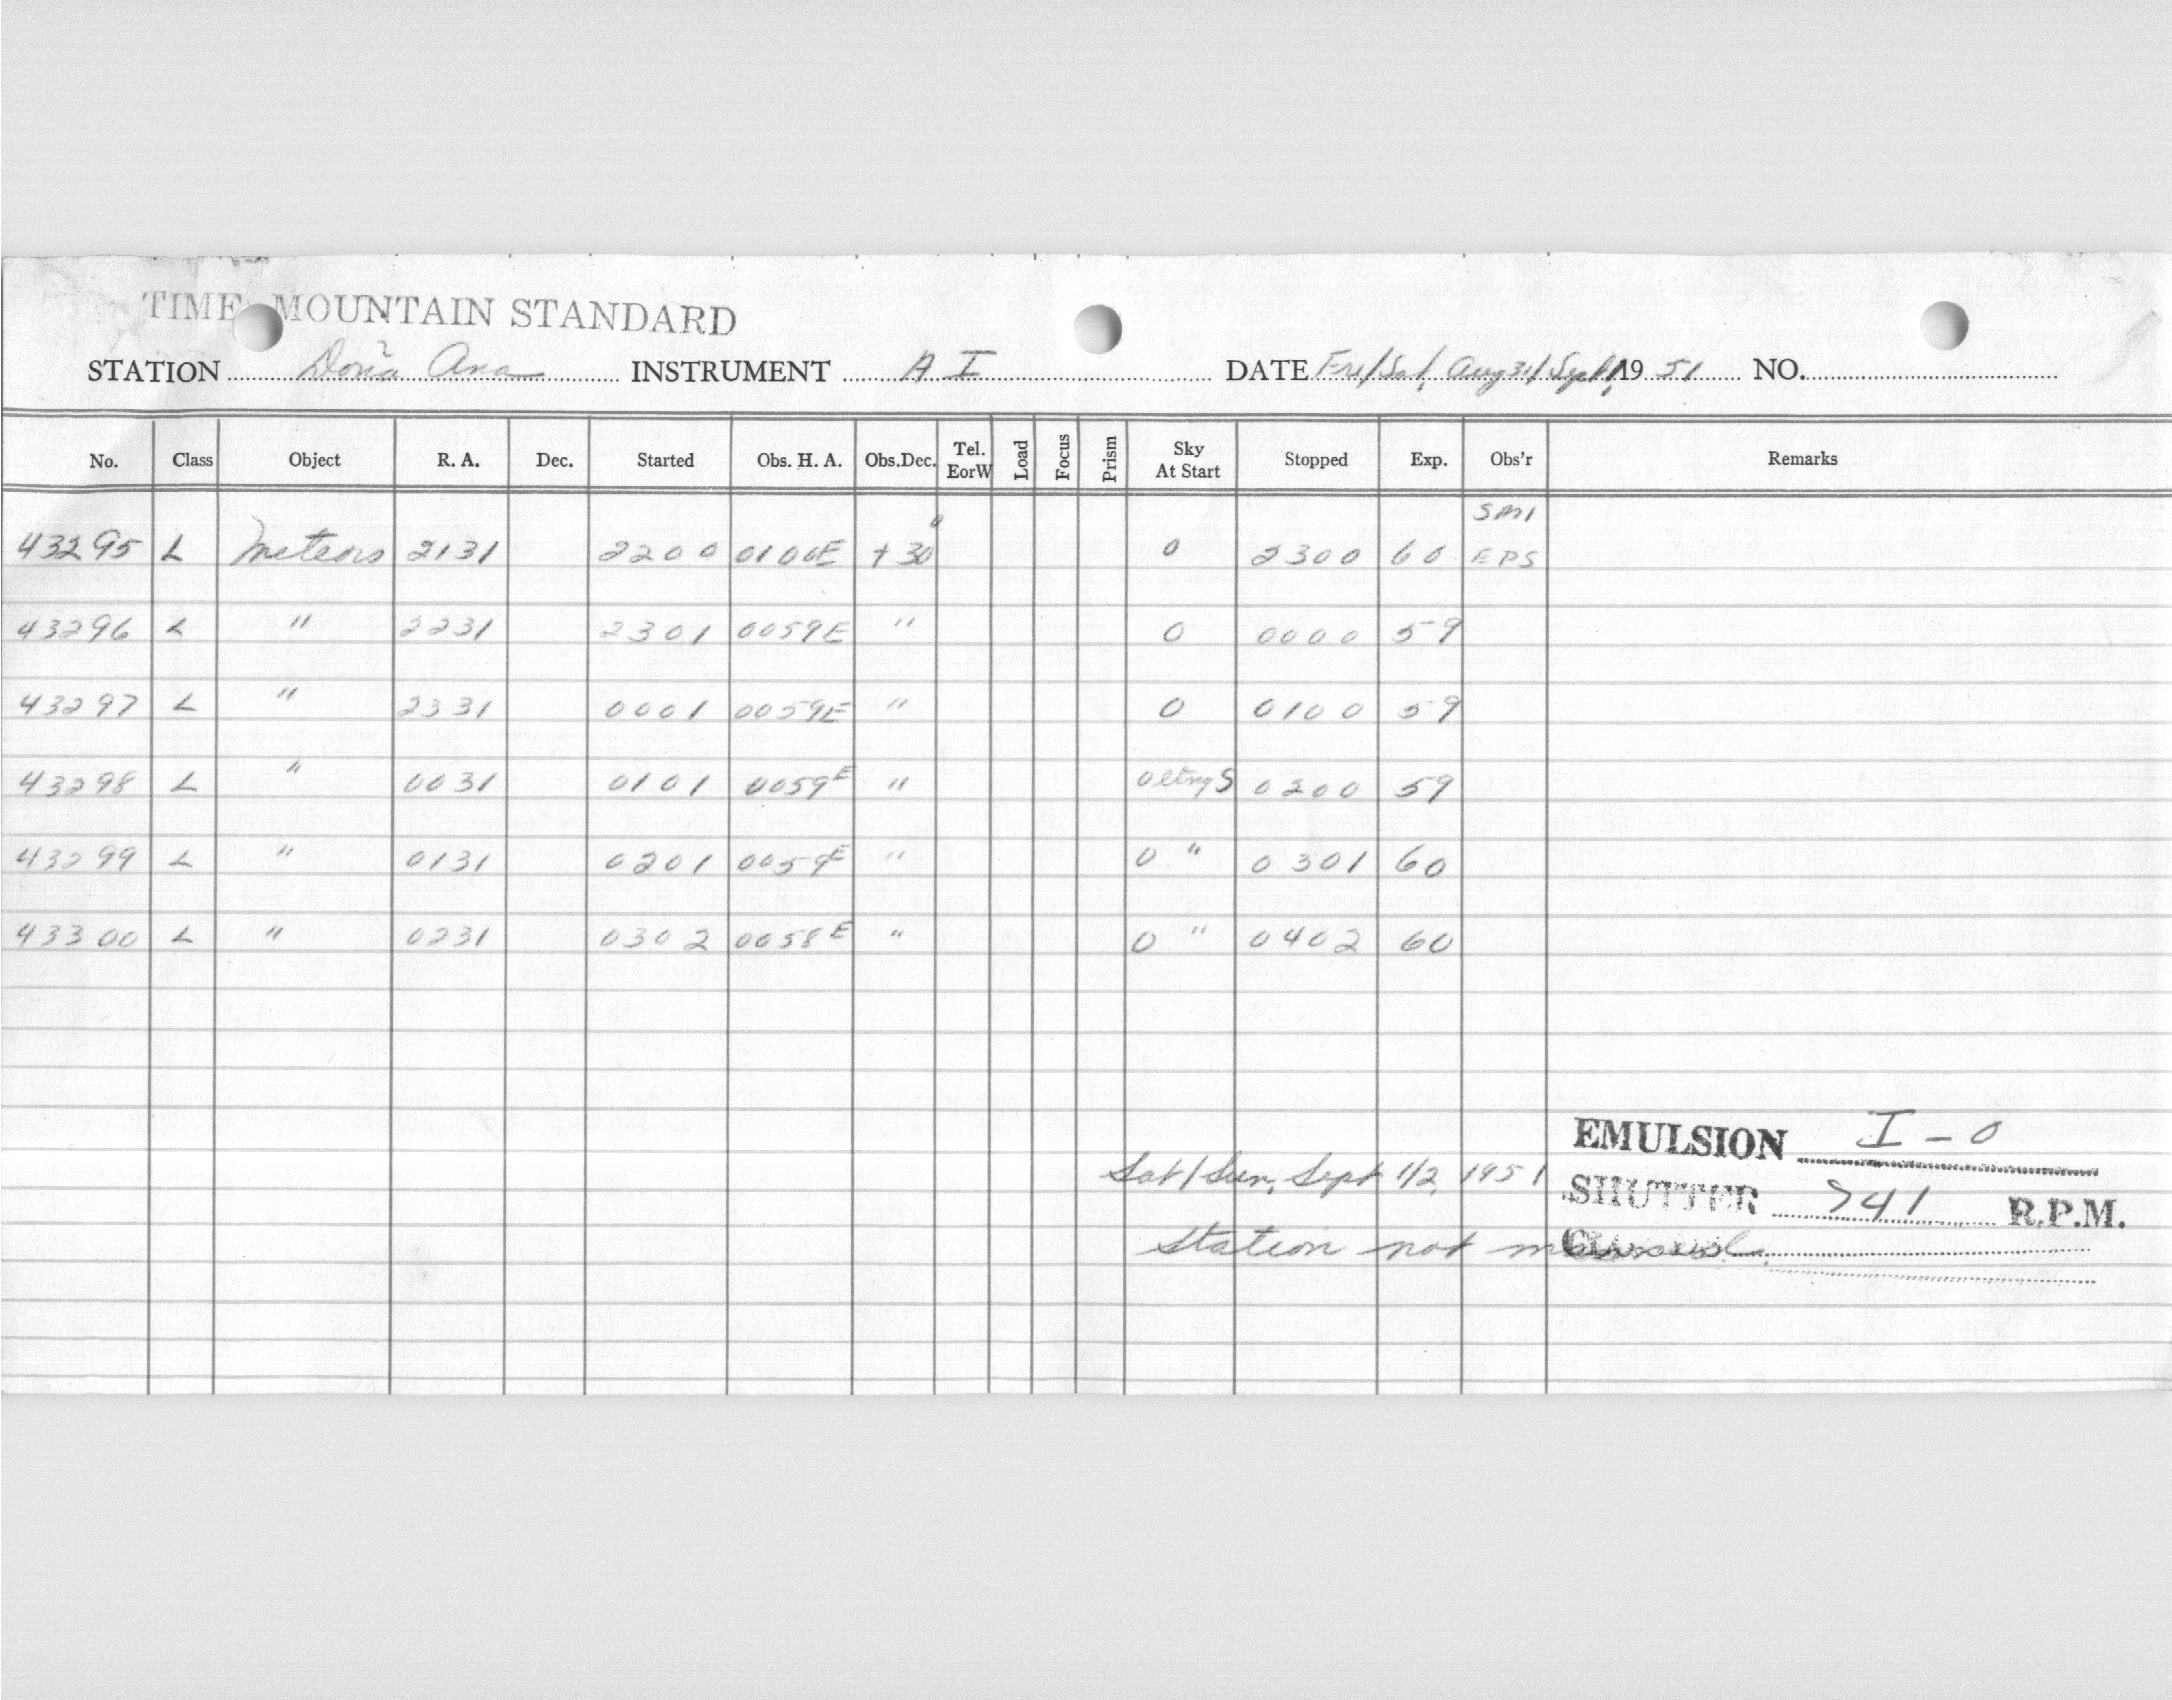 TIME MOUNTAIN STANDARD
STATION Doña Ana INSTRUMENT A I DATE Fri/Sat, Aug 31/Sept 1, 1951 NO.
No. Class Object R. A. Dec. Started Obs. H. A. Obs.Dec. Tel. EorW Load Focus Prism Sky At Start Stopped Exp. Obs'r Remarks
SMI
43295 L Meteors 2131 2200 0100E +30° 0 2300 60 EPS
43296 L " 2231 2301 0059E " 0 0000 59
43297 L " 2331 0001 0059E " 0 0100 59
43298 L " 0031 0101 0059E " 0 ltng S 0200 59
43299 L " 0131 0201 0059E " 0 " 0301 60
43300 L " 0231 0302 0058E " 0 " 0402 60
EMULSION I-0
Sat/Sun, Sept 1/2, 1951
SHUTTER >41 R.P.M.
Station not manned.